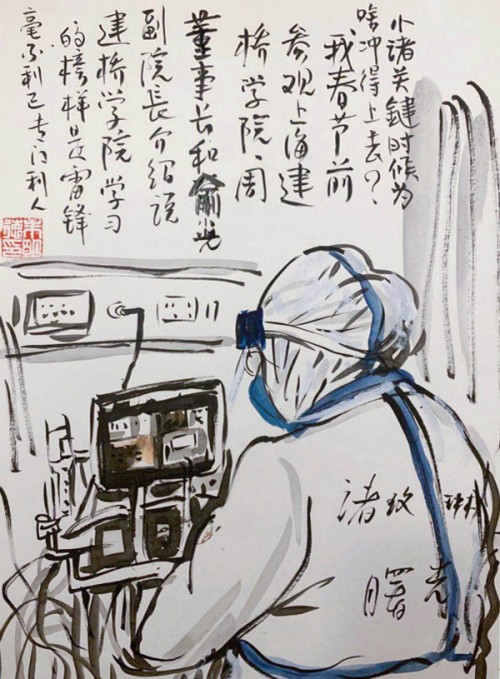 小诸关键时候为
啥冲得上去?、
我春节前
参观上海建
桥学院、周
董事长和俞
副院長介绍说
建桥学院学习
的榜样是雷锋
毫不利己专门利人
诸玟琳
曙光